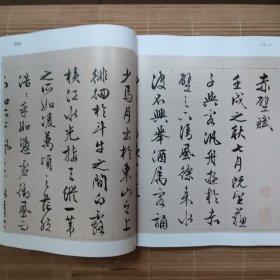 赤壁賦
壬戌之秋七月既望蘇
子與客汎舟遊於赤
壁之下清風徐來水
波不興舉酒屬客誦
少焉月出於東山之上
徘徊於斗牛之間白露
橫江水光接天縱一葦
之所如凌萬頃之茫然
浩浩乎如憑虛御風而